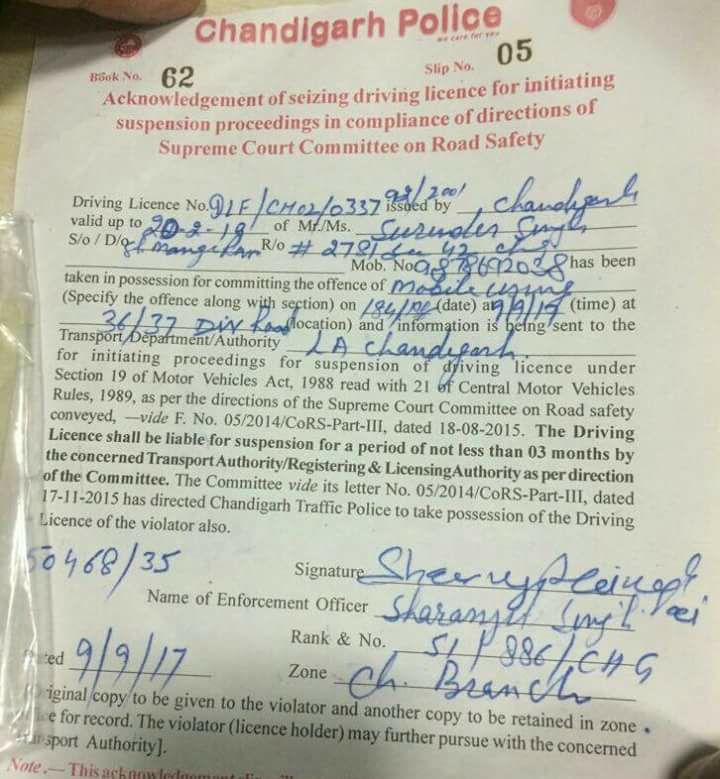 Chandigarh Police
we care for you
Book No. 62 Slip No. 05
Acknowledgement of seizing driving licence for initiating
suspension proceedings in compliance of directions of
Supreme Court Committee on Road Safety
Driving Licence No. DLF/CH02/0337 98/2001 issued by Chandigarh
valid up to 20-2-19 of Mr./Ms. Surender Singh
S/o / D/o Sh Mange Ram R/o # 2781 Sec 42 Chg
Mob. No. has been
taken in possession for committing the offence of Mobile using
(Specify the offence along with section) on 184 (date) at 9/9/17 (time) at
36/37 Div Road (location) and information is being sent to the
Transport Department/Authority LA Chandigarh.
for initiating proceedings for suspension of driving licence under
Section 19 of Motor Vehicles Act, 1988 read with 21 of Central Motor Vehicles
Rules, 1989, as per the directions of the Supreme Court Committee on Road safety
conveyed, —vide F. No. 05/2014/CoRS-Part-III, dated 18-08-2015. The Driving
Licence shall be liable for suspension for a period of not less than 03 months by
the concerned Transport Authority/Registering & Licensing Authority as per direction
of the Committee. The Committee vide its letter No. 05/2014/CoRS-Part-III, dated
17-11-2015 has directed Chandigarh Traffic Police to take possession of the Driving
Licence of the violator also.
50468/35
Signature
Name of Enforcement Officer Sharanjit Singh
Rank & No. SI/886/CHG
Dated 9/9/17 Zone Ch. Branch
riginal copy to be given to the violator and another copy to be retained in zone
e for record. The violator (licence holder) may further pursue with the concerned
sport Authority].
Note.— This acknowledgement